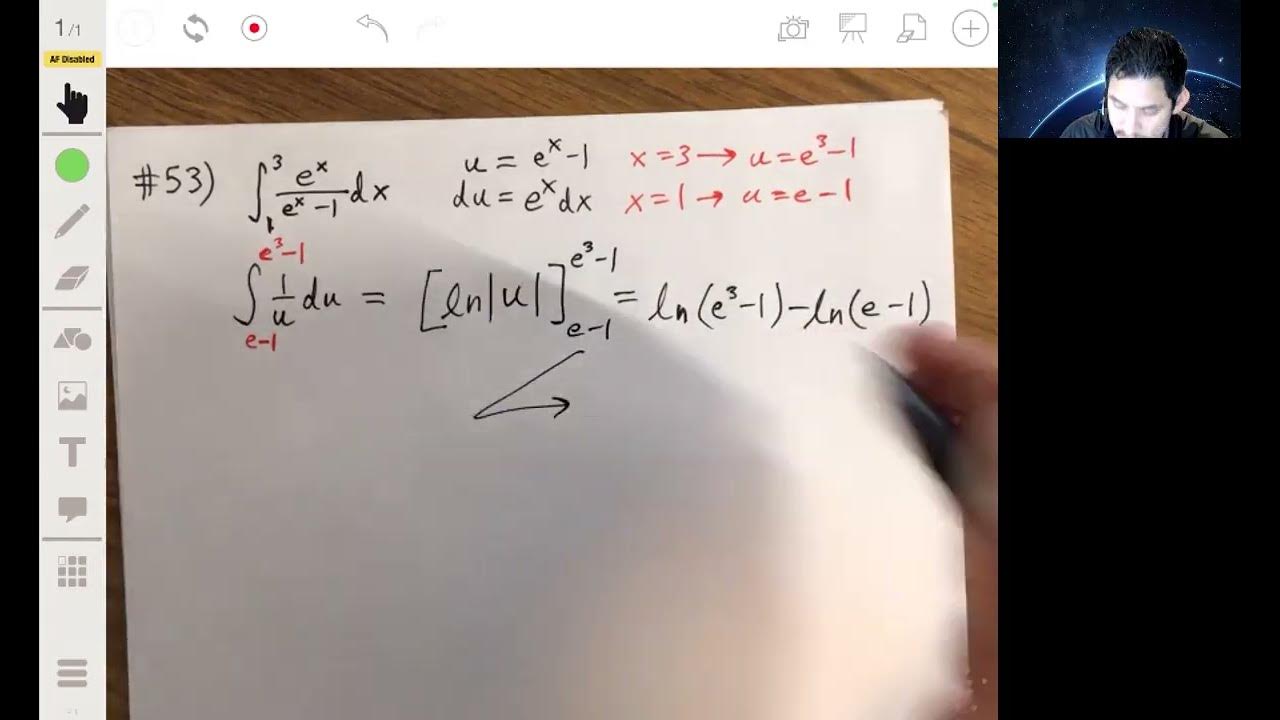 1/1
AF Disabled
T
#53) ∫₁³ eˣ/(eˣ-1) dx u = eˣ-1 x=3→ u=e³-1
du = eˣdx x=1→ u=e-1
∫_{e-1}^{e³-1} 1/u du = [ln|u|]_{e-1}^{e³-1} = ln(e³-1)-ln(e-1)